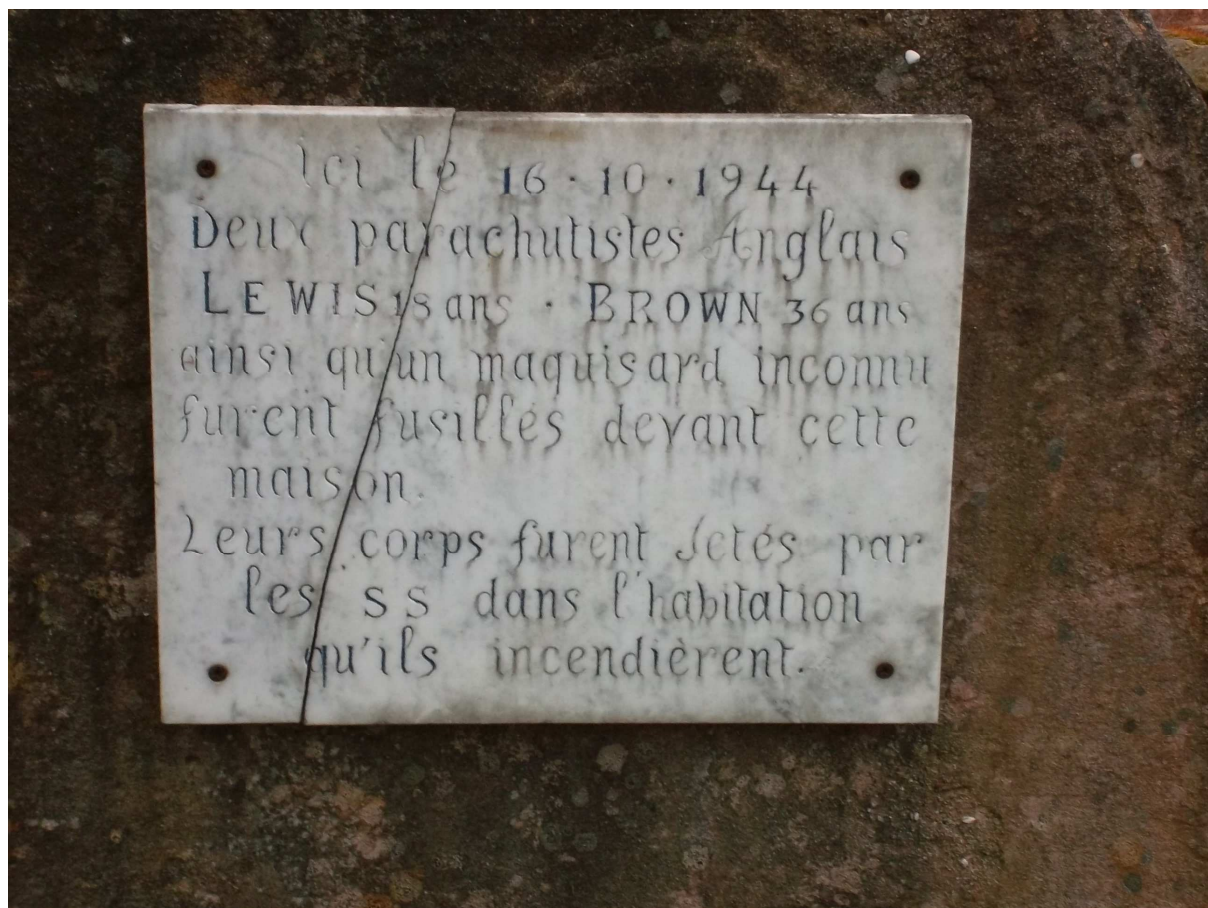 Ici le 16·10·1944
Deux parachutistes Anglais
LEWIS 18 ans · BROWN 36 ans
ainsi qu'un maquisard inconnu
furent fusillés devant cette
maison.
Leurs corps furent Jetés par
les SS dans l'habitation
qu'ils incendièrent.